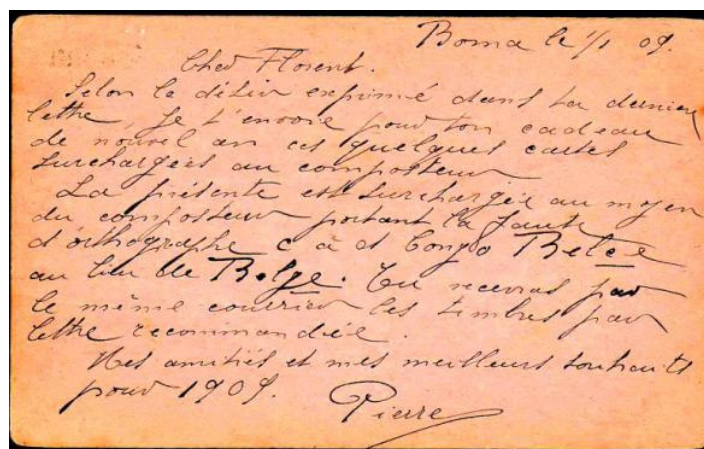 Boma le 1/1 09.
Cher Florent.
Selon le désir exprimé dans ta dernière
lettre, je t'envoie pour ton cadeau
de nouvel an ces quelques cartes
surchargées au composteur
La présente est surchargée au moyen
du composteur portant la faute
d'orthographe c à d Congo Belce
au lieu de Belge. Tu recevras par
le même courrier les timbres par
lettre recommandée.
Mes amitiés et mes meilleurs souhaits
pour 1909.
Pierre